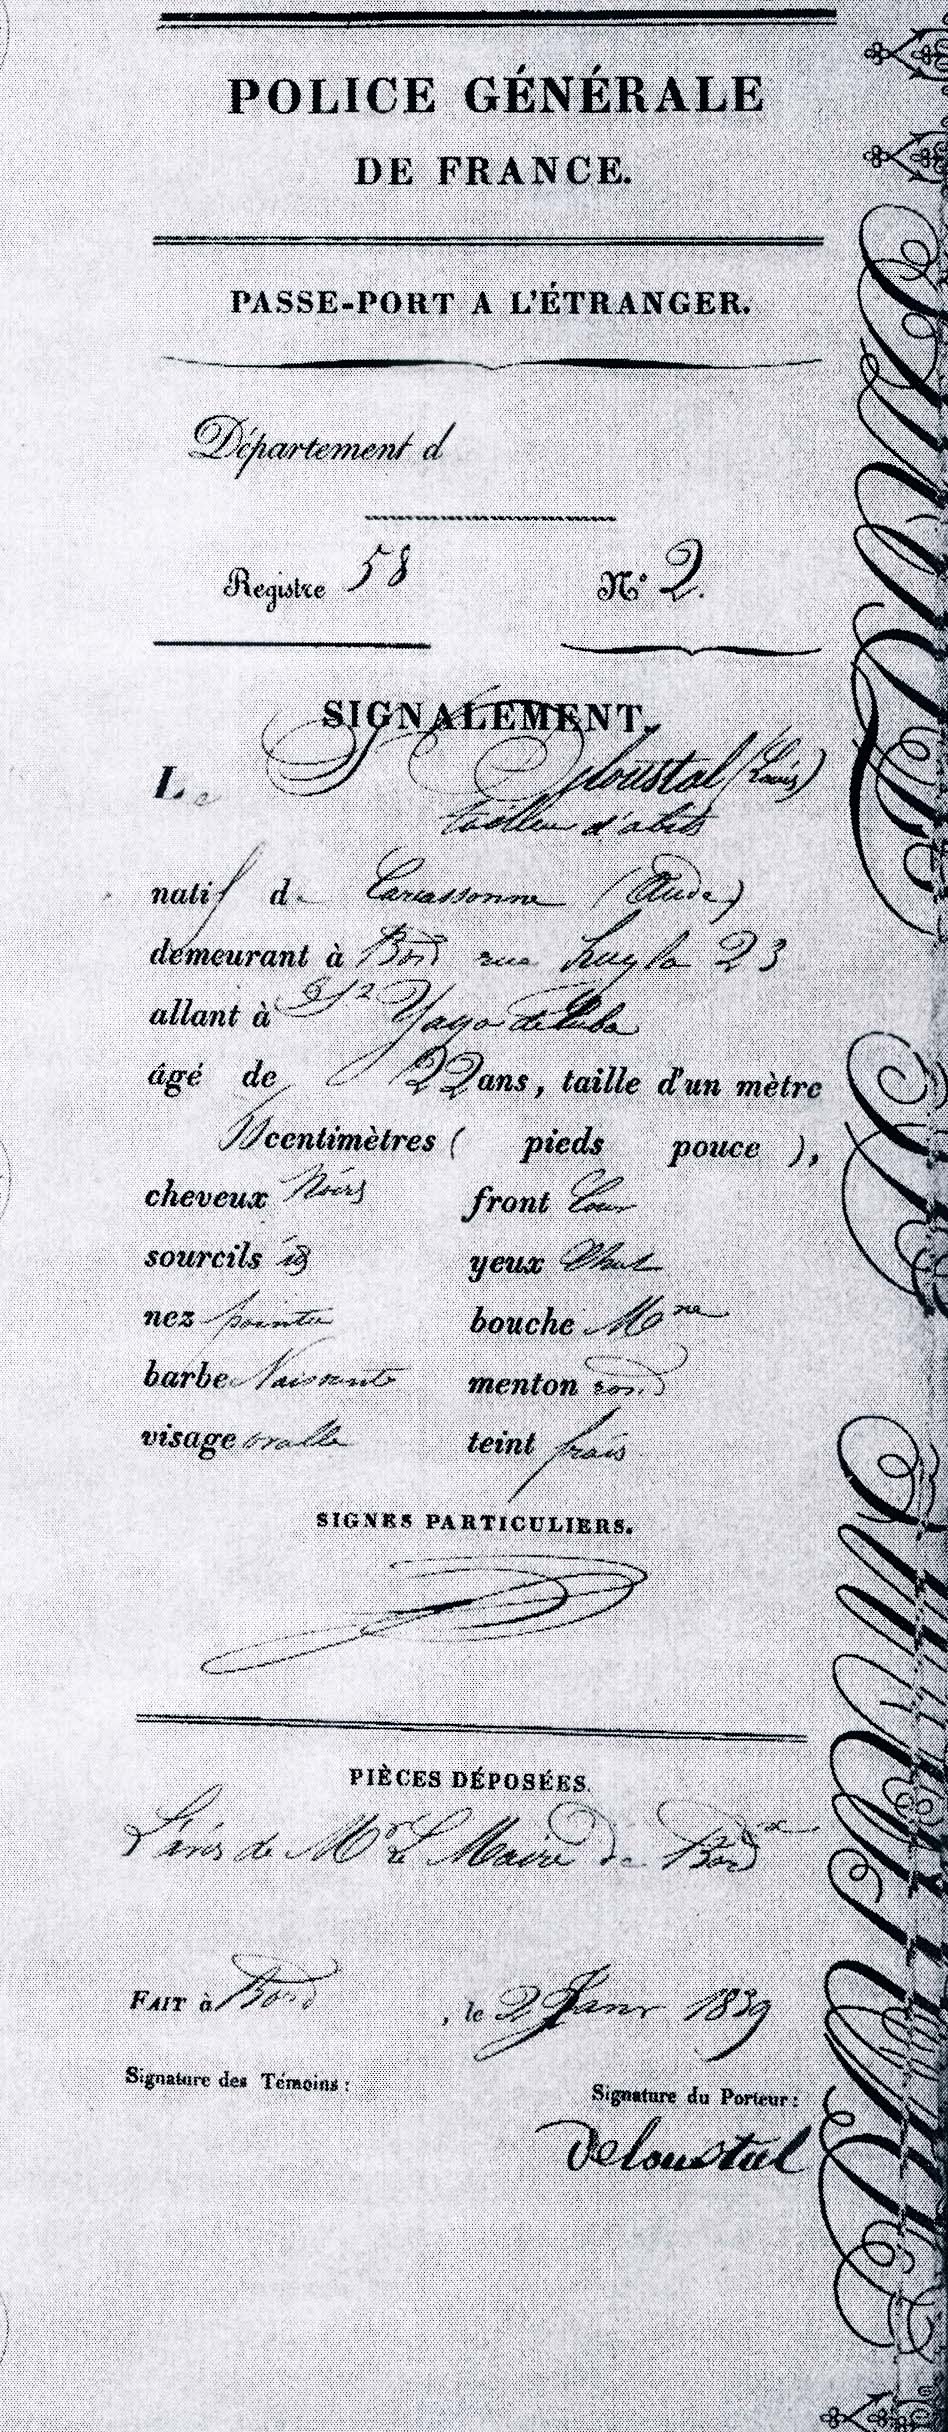 POLICE GÉNÉRALE
DE FRANCE.
PASSE-PORT A L'ÉTRANGER.
Département d
Registre 58 N° 2.
SIGNALEMENT.
Le S. Deloustal (Louis)
tailleur d'abits
natif de Carcassonne (Aude)
demeurant à Bord rue Hugla 23
allant à St Yago de Cuba
âgé de 22 ans, taille d'un mètre
centimètres ( pieds pouce ),
cheveux Noirs front
sourcils id yeux Chat
nez pointu bouche Mne
barbe Naissante menton rond
visage oralle teint frais
SIGNES PARTICULIERS.
PIÈCES DÉPOSÉES.
L'avis de Mr Le Maire de Bordx
FAIT à Bord , le 2 Janr 1839
Signature des Témoins :
Signature du Porteur :
Deloustal